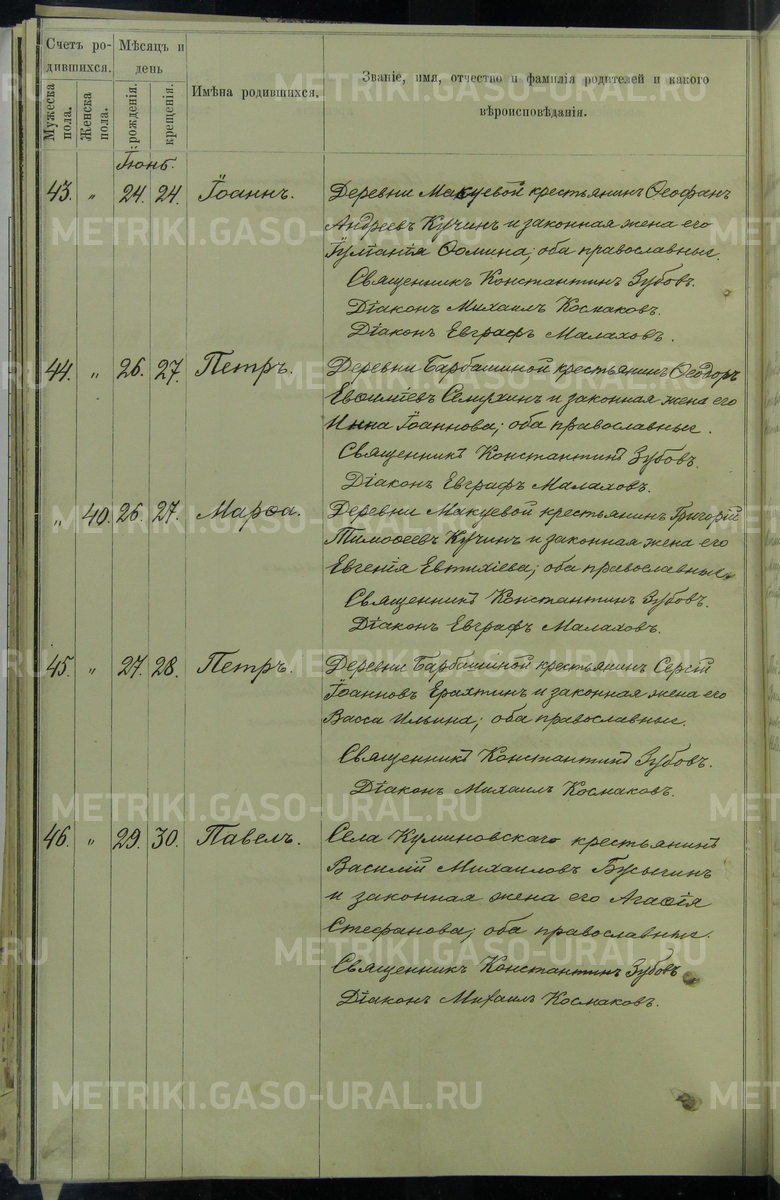 Счетъ ро-
дившихся.
Мѣсяцъ и
день
Мужеска
пола.
Женска
пола.
рожденія.
крещенія.
Имѣна родившихся.
Званіе, имя, отчество и фамилія родителей и какого
вѣроисповѣданія.
Іюнь.
43. " 24. 24. Іоаннъ. Деревни Макуевой крестьянинъ Ѳеофан
Андреевъ Кучин и законная жена его
Іуліанія Ѳомина; оба православные.
Священникъ Константинъ Зубовъ.
Діаконъ Михаилъ Космаковъ.
Діаконъ Евграфъ Малаховъ.
44. " 26. 27. Петръ. Деревни Барбашиной крестьянинъ Ѳеодоръ
Евѳиміевъ и законная жена его
Іоаннова; оба православные.
Священникъ Константинъ Зубовъ.
Діаконъ Евграфъ Малаховъ.
" 40. 26. 27. Марѳа. Деревни Макуевой крестьянинъ Григорій
Тимоѳеевъ Кучинъ и законная жена его
Евгенія Евтихіева; оба православные.
Священникъ Константинъ Зубовъ.
Діаконъ Евграфъ Малаховъ.
45. " 27. 28. Петръ. Деревни Барбашиной крестьянинъ Сергій
Іоанновъ Ерахтинъ и законная жена его
Васса Ильина; оба православные.
Священникъ Константинъ Зубовъ.
Діаконъ Михаилъ Космаковъ.
46. " 29. 30. Павелъ. Села Куминовскаго крестьянинъ
Василій Михаиловъ Бусыгинъ
и законная жена его Агаѳія
Стефанова; оба православные.
Священникъ Константинъ Зубовъ
Діаконъ Михаилъ Космаковъ.
METRIKI.GASO-URAL.RU